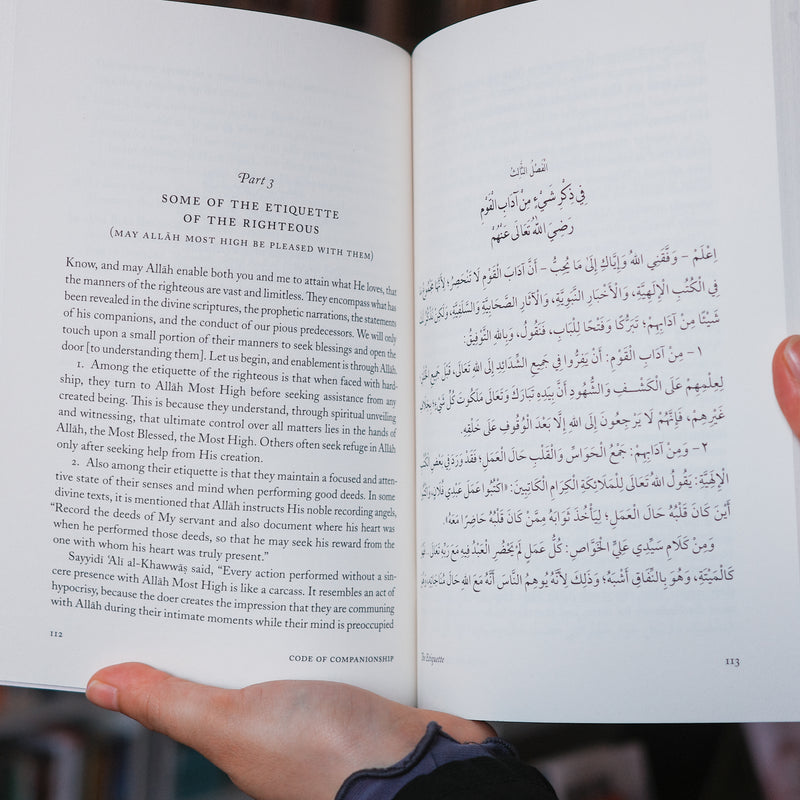 Part 3
SOME OF THE ETIQUETTE
OF THE RIGHTEOUS
(MAY ALLĀH MOST HIGH BE PLEASED WITH THEM)
Know, and may Allāh enable both you and me to attain what He loves, that
the manners of the righteous are vast and limitless. They encompass what has
been revealed in the divine scriptures, the prophetic narrations, the statements
of his companions, and the conduct of our pious predecessors. We will only
touch upon a small portion of their manners to seek blessings and open the
door [to understanding them]. Let us begin, and enablement is through Allāh.
1. Among the etiquette of the righteous is that when faced with hard-
ship, they turn to Allāh Most High before seeking assistance from any
created being. This is because they understand, through spiritual unveiling
and witnessing, that ultimate control over all matters lies in the hands of
Allāh, the Most Blessed, the Most High. Others often seek refuge in Allāh
only after seeking help from His creation.
2. Also among their etiquette is that they maintain a focused and atten-
tive state of their senses and mind when performing good deeds. In some
divine texts, it is mentioned that Allāh instructs His noble recording angels,
“Record the deeds of My servant and also document where his heart was
when he performed those deeds, so that he may seek his reward from the
one with whom his heart was truly present.”
Sayyidī ʿAlī al-Khawwāṣ said, “Every action performed without a sin-
cere presence with Allāh Most High is like a carcass. It resembles an act of
hypocrisy, because the doer creates the impression that they are communing
with Allāh during their intimate moments while their mind is preoccupied
112
CODE OF COMPANIONSHIP
الْفَصْلُ الثَّالِثُ
فِي ذِكْرِ شَيْءٍ مِنْ آدَابِ الْقَوْمِ
رَضِيَ اللهُ تَعَالَى عَنْهُمْ
اِعْلَمْ – وَفَّقَنِي اللهُ وَإِيَّاكَ إِلَى مَا يُحِبُّ – أَنَّ آدَابَ الْقَوْمِ لَا تَنْحَصِرُ؛ لِأَنَّهَا
فِي الْكُتُبِ الْإِلَهِيَّةِ، وَالْأَخْبَارِ النَّبَوِيَّةِ، وَالْآثَارِ الصَّحَابِيَّةِ وَالسَّلَفِيَّةِ،
شَيْئًا مِنْ آدَابِهِمْ؛ تَبَرُّكًا وَفَتْحًا لِلْبَابِ، فَنَقُولُ، وَبِاللهِ التَّوْفِيقُ:
١- مِنْ آدَابِ الْقَوْمِ: أَنْ يَفِرُّوا فِي جَمِيعِ الشَّدَائِدِ إِلَى اللهِ تَعَالَى، قَبْلَ جَمِيعِ
لِعِلْمِهِمْ عَلَى الْكَشْفِ وَالشُّهُودِ أَنَّ بِيَدِهِ تَبَارَكَ وَتَعَالَى مَلَكُوتَ كُلِّ شَيْءٍ؛ بِخِلَافِ
غَيْرِهِمْ، فَإِنَّهُمْ لَا يَرْجِعُونَ إِلَى اللهِ إِلَّا بَعْدَ الْوُقُوفِ عَلَى خَلْقِهِ.
٢- وَمِنْ آدَابِهِمْ: جَمْعُ الْحَوَاسِّ وَالْقَلْبِ حَالَ الْعَمَلِ؛ فَقَدْ وَرَدَ فِي بَعْضِ
الْإِلَهِيَّةِ: يَقُولُ اللهُ تَعَالَى لِلْمَلَائِكَةِ الْكِرَامِ الْكَاتِبِينَ: «اكْتُبُوا عَمَلَ عَبْدِي فُلَانٍ،
أَيْنَ كَانَ قَلْبُهُ حَالَ الْعَمَلِ؛ لِيَأْخُذَ ثَوَابَهُ مِمَّنْ كَانَ قَلْبُهُ حَاضِرًا مَعَهُ».
وَمِنْ كَلَامِ سَيِّدِي عَلِيٍّ الْخَوَّاصِ: كُلُّ عَمَلٍ لَمْ يَحْضُرِ الْعَبْدُ فِيهِ مَعَ رَبِّهِ تَعَالَى
كَالْمَيْتَةِ، وَهُوَ بِالنِّفَاقِ أَشْبَهُ؛ وَذَلِكَ لِأَنَّهُ يُوهِمُ النَّاسَ أَنَّهُ مَعَ اللهِ حَالَ مُنَاجَاتِهِ
The Etiquette
113